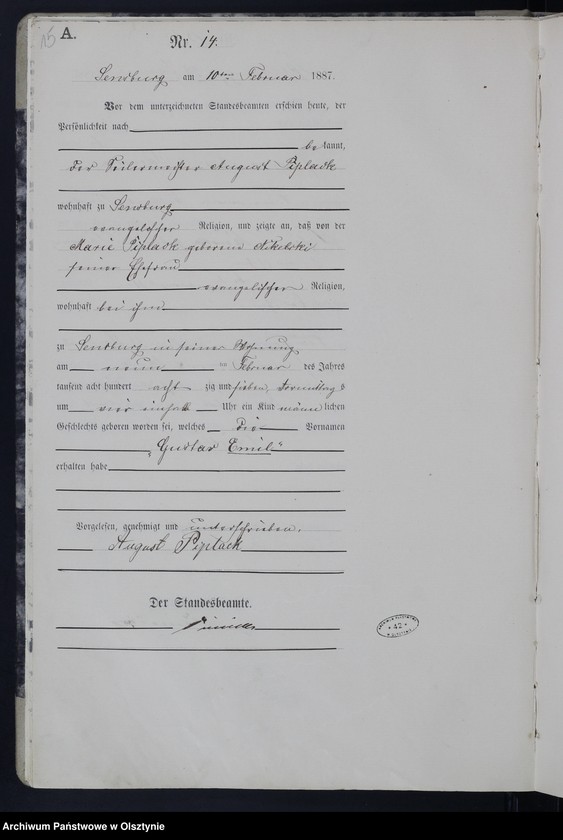 15
A.
Nr. 14.
Sensburg am 10ten Februar 1887.
Vor dem unterzeichneten Standesbeamten erschien heute, der
Persönlichkeit nach
bekannt,
der Seilermeister August Piplack
wohnhaft zu Sensburg
evangelischer Religion, und zeigte an, daß von der
Marie Piplack geborene Nikolski
seiner Ehefrau
evangelischer Religion,
wohnhaft bei ihm
zu Sensburg in seiner Wohnung
am neun ten Februar des Jahres
tausend acht hundert acht zig und sieben, Vormittags
um vier einhalb Uhr ein Kind männlichen
Geschlechts geboren worden sei, welches die Vornamen
„Gustav Emil“
erhalten habe
Vorgelesen, genehmigt und unterschrieben.
August Piplack
Der Standesbeamte.
42
Archiwum Państwowe w Olsztynie